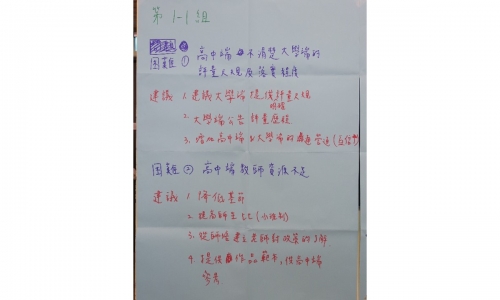 第 1-1 組
困難① 高中端不清楚大學端的
評量尺規及落實程度
建議 1. 建議大學端提供評量尺規
明確
2. 大學端公告評量歷程
3. 增加高中端與大學端的溝通管道(互信
困難② 高中端教師資源不足
建議 1. 降低基節
2. 提高師生比(小班制)
3. 從師培建立老師對政策的了解
4. 提供作品範本,供高中端
參考